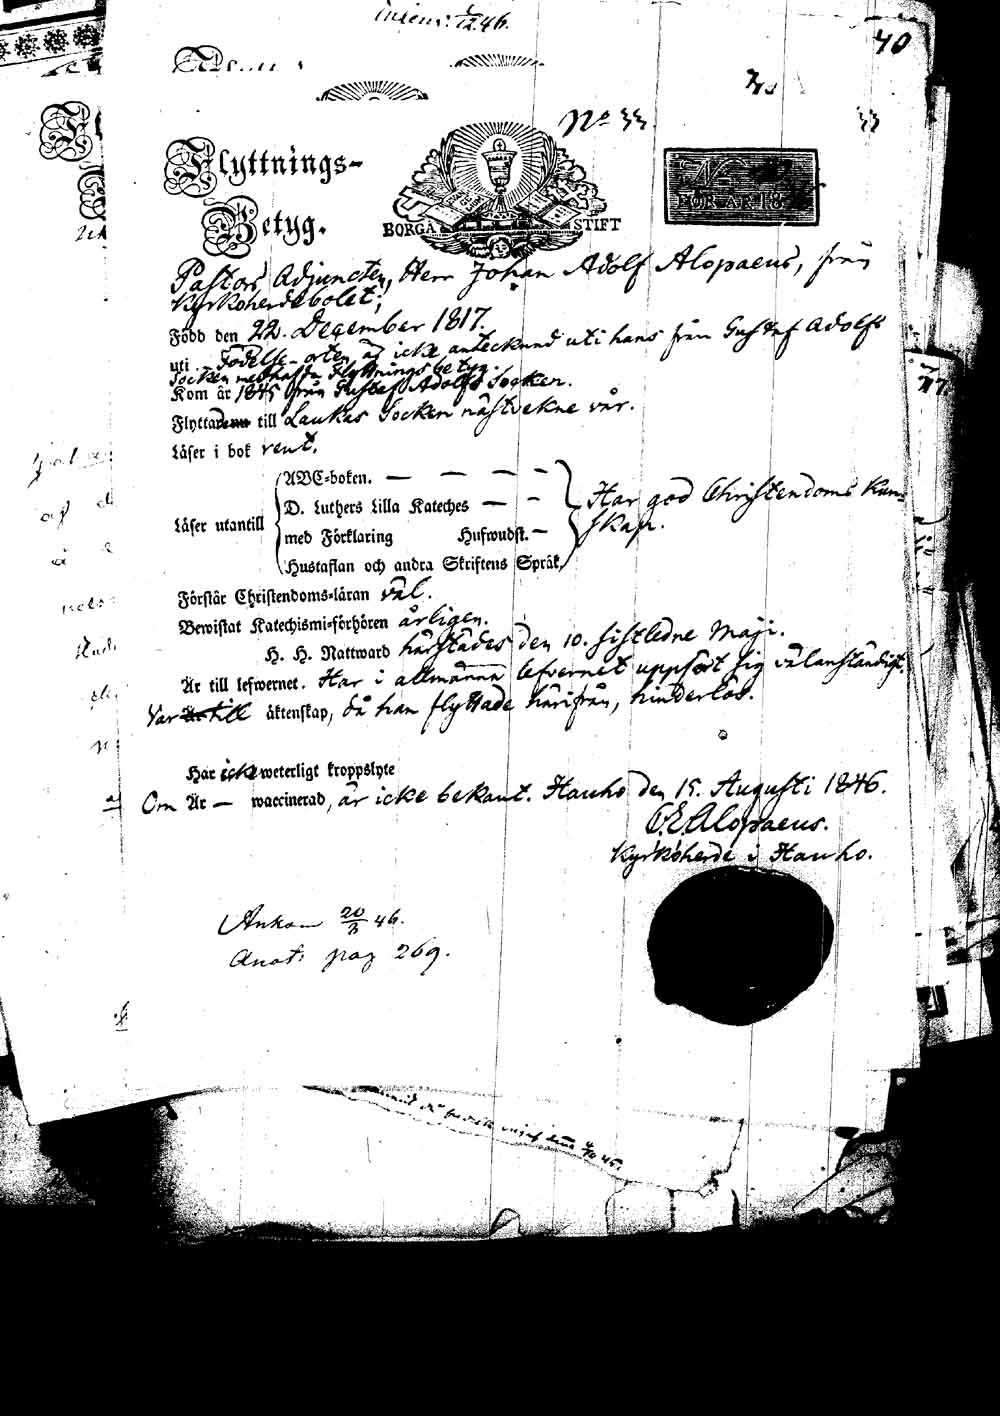 40
No 33
33
Flyttnings-
Betyg.
BORGÅ STIFT
FÖR ÅR 18
Pastors Adjuncten, Herr Johan Adolf Alopaeus, från
Kyrkoherdebolet;
Född den 22. December 1817.
uti Födelse-orten är icke antecknad uti hans från Gustaf Adolfs
Socken medhafda Flyttningsbetyg.
Kom år 1845 från Gustaf Adolfs Socken.
Flyttade till Laukas Socken nästvekne vår.
Läser i bok rent.
Läser utantill
ABC-boken. — — — —
D. Luthers Lilla Kateches — —
med Förklaring Hufwudst. —
Hustaflan och andra Skriftens Språk,
Har god Christendoms kun-
skap.
Förstår Christendoms-läran väl.
Bewistat Katechismi-förhören årligen.
H. H. Nattward härstädes den 10. sistledne Maji.
Är till lefwernet. Har i allmänna lefvernet uppfört sig välanständigt.
Var äktenskap, då han flyttade härifrån, hinderlös.
Har icke weterligt kroppslyte
Om Är — waccinerad, är icke bekant. Hauho den 15. Augusti 1846.
Alopaeus.
Kyrkoherde i Hauho.
Ankom 20/3 46.
Anot: pag 269.